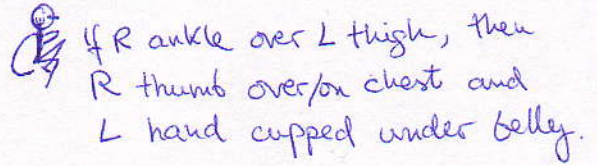 if R ankle over L thigh, then
R thumb over/on chest and
L hand cupped under belly.